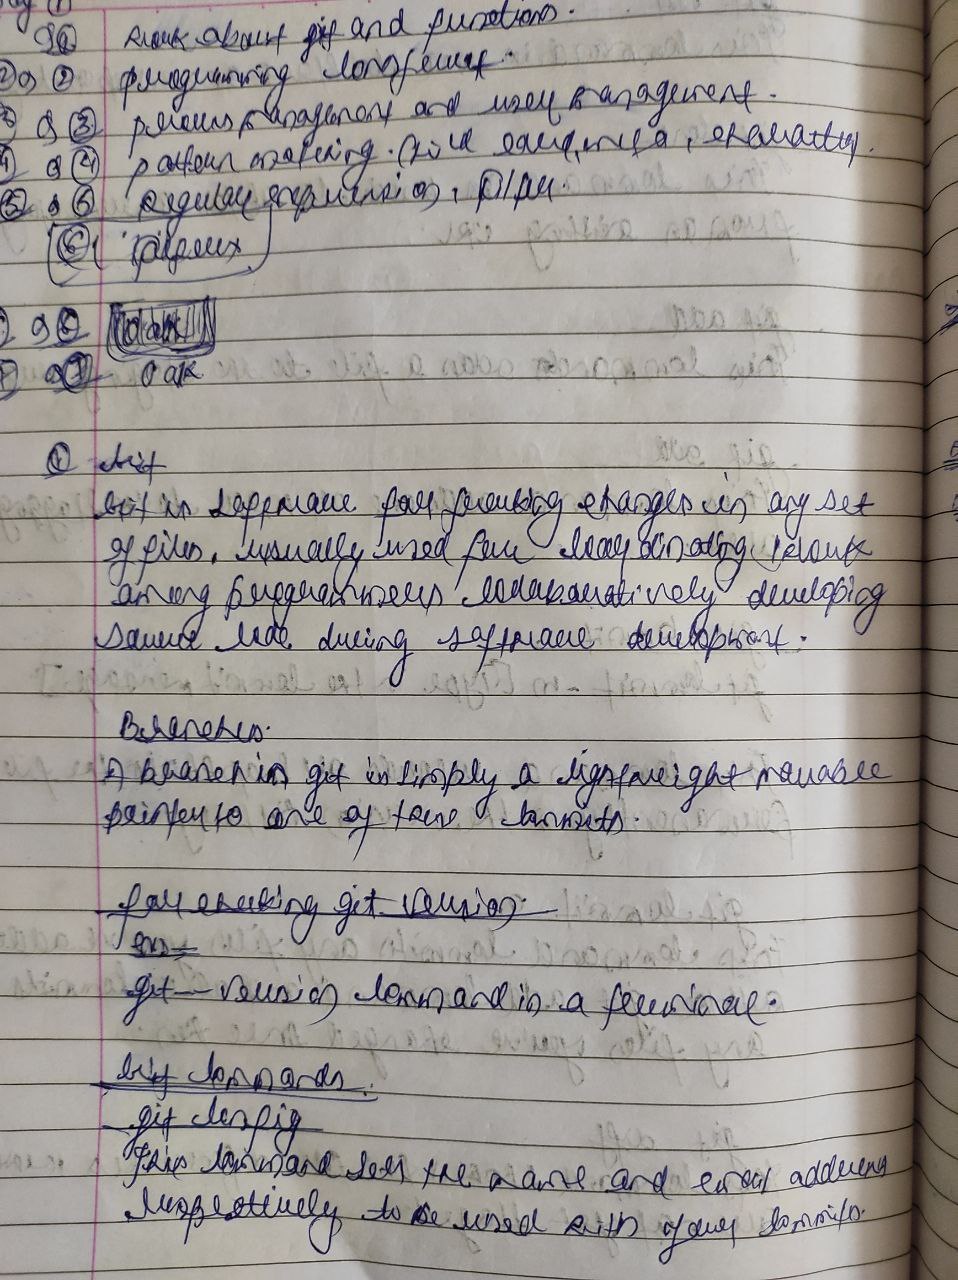 Q① Work about git and functions.
② Q② programming language.
③ Q③ process management and user management.
④ Q④ pattern matching.
⑤ Q⑤ Regular expression,
⑥
Q⑥
Q⑦
① Git
Git is software for tracking changes in any set
of files, usually used for coordinating work
among programmers collaboratively developing
source code during software development.
Branches.
A branch in git is simply a lightweight movable
pointer to one of these commits.
for checking git version.
git --version command in a terminal.
Git commands.
git config
This command sets the name and email address
respectively to be used with your commits.